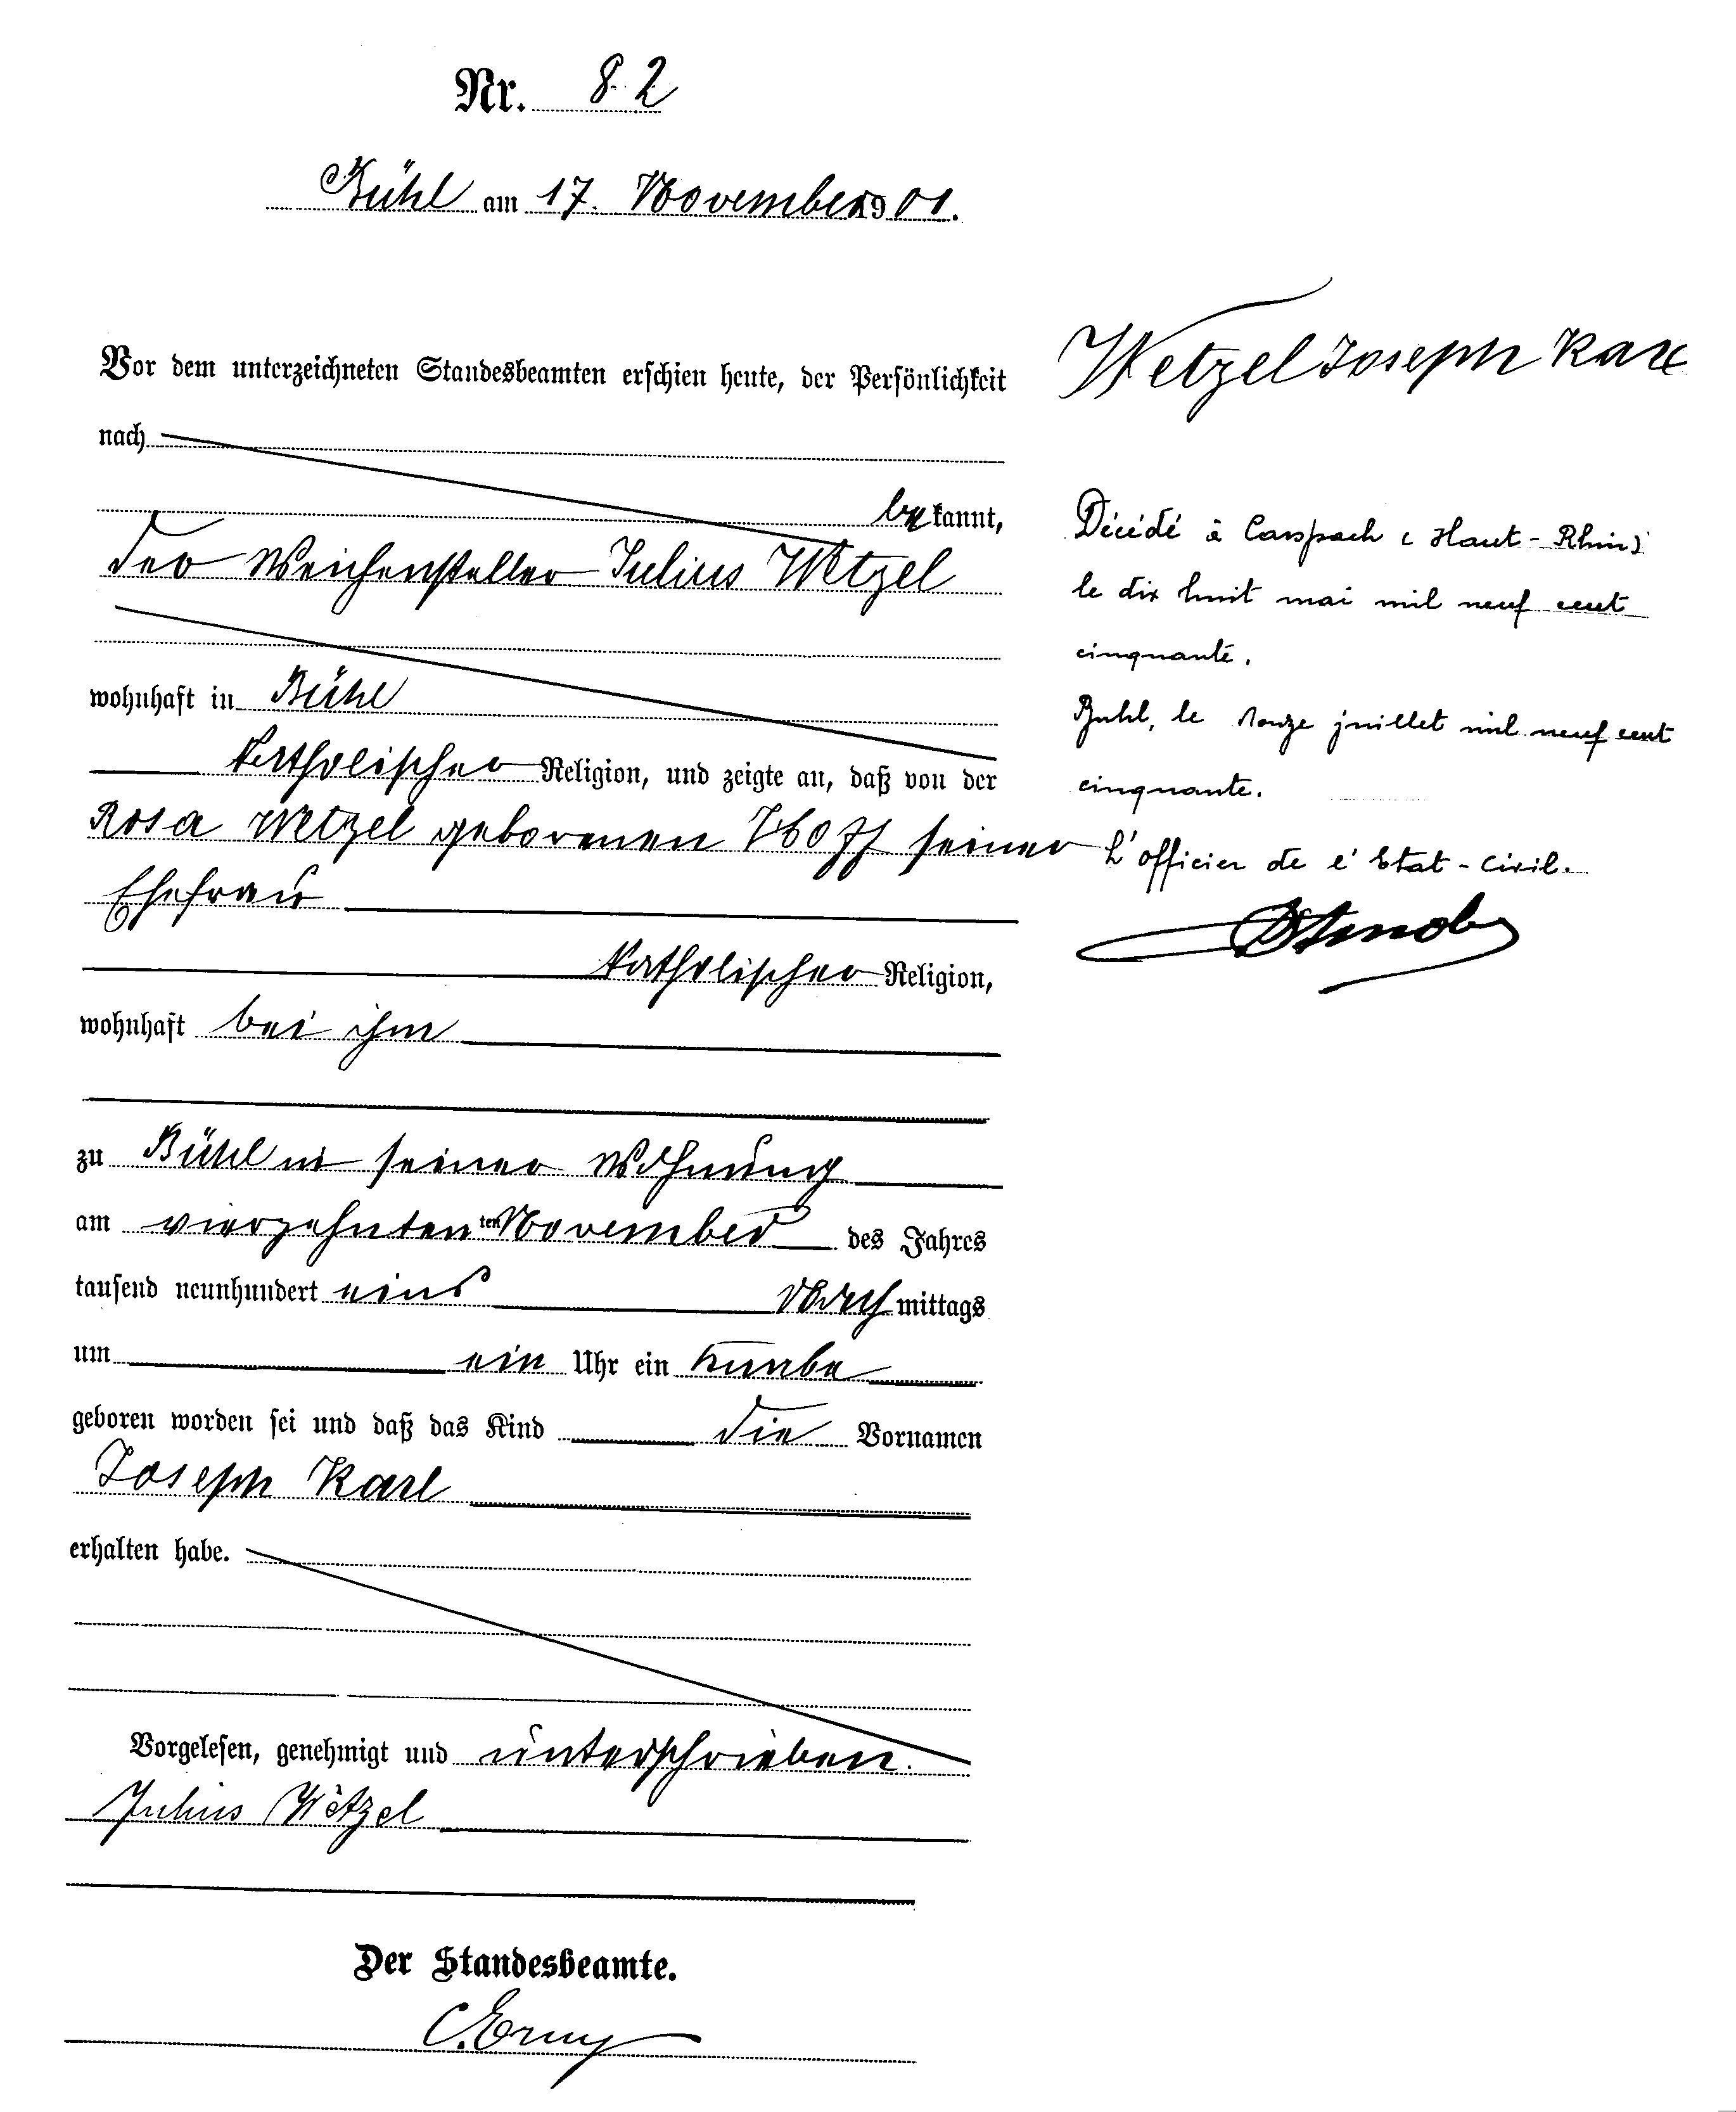 Nr. 82
Bühl am 17. November 1901.
Vor dem unterzeichneten Standesbeamten erschien heute, der Persönlichkeit
nach
bekannt,
der Weichensteller Julius Wetzel
wohnhaft in Bühl
katholischer Religion, und zeigte an, daß von der
Rosa Wetzel geborenen Hoff seiner
Ehefrau
katholischer Religion,
wohnhaft bei ihm
zu Bühl in seiner Wohnung
am vierzehnten ten November des Jahres
tausend neunhundert eins Nachmittags
um ein Uhr ein Knabe
geboren worden sei und daß das Kind die Vornamen
Joseph Karl
erhalten habe.
Vorgelesen, genehmigt und unterschrieben.
Julius Wetzel
Der Standesbeamte.
C. Erny
Wetzel Joseph Karl
Décédé à Carspach (Haut-Rhin)
le dix huit mai mil neuf cent
cinquante.
Buhl, le onze juillet mil neuf cent
cinquante.
L'officier de l'Etat-Civil.